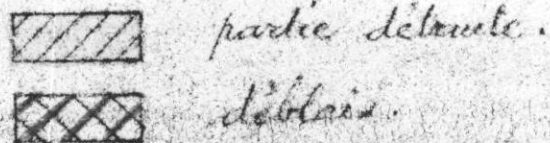 partie détruite.
déblais.